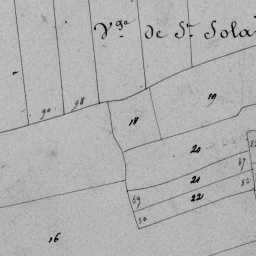 V.ga de St. Sola
90 98
18 19
20
67
21 52
69 22
50
16